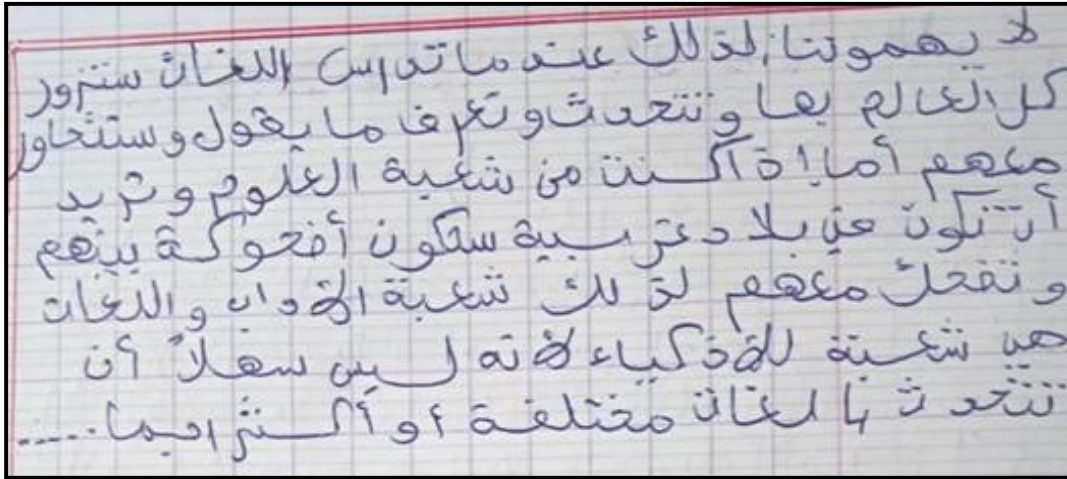 لا يهموننا. لذلك عندما تدرس اللغات ستزور
كل العالم بها وتتحدث وتعرف ما يقول وستتحاور
معهم أما إذا كنت من شعبة العلوم وتريد
أن تكون في بلاد غربية ستكون أضحوكة بينهم
وتضحك معهم لذلك شعبة الآداب واللغات
هي شعبة للأذكياء لأنه ليس سهلاً أن
تتحدث بالغات مختلفة أو أكثر .....